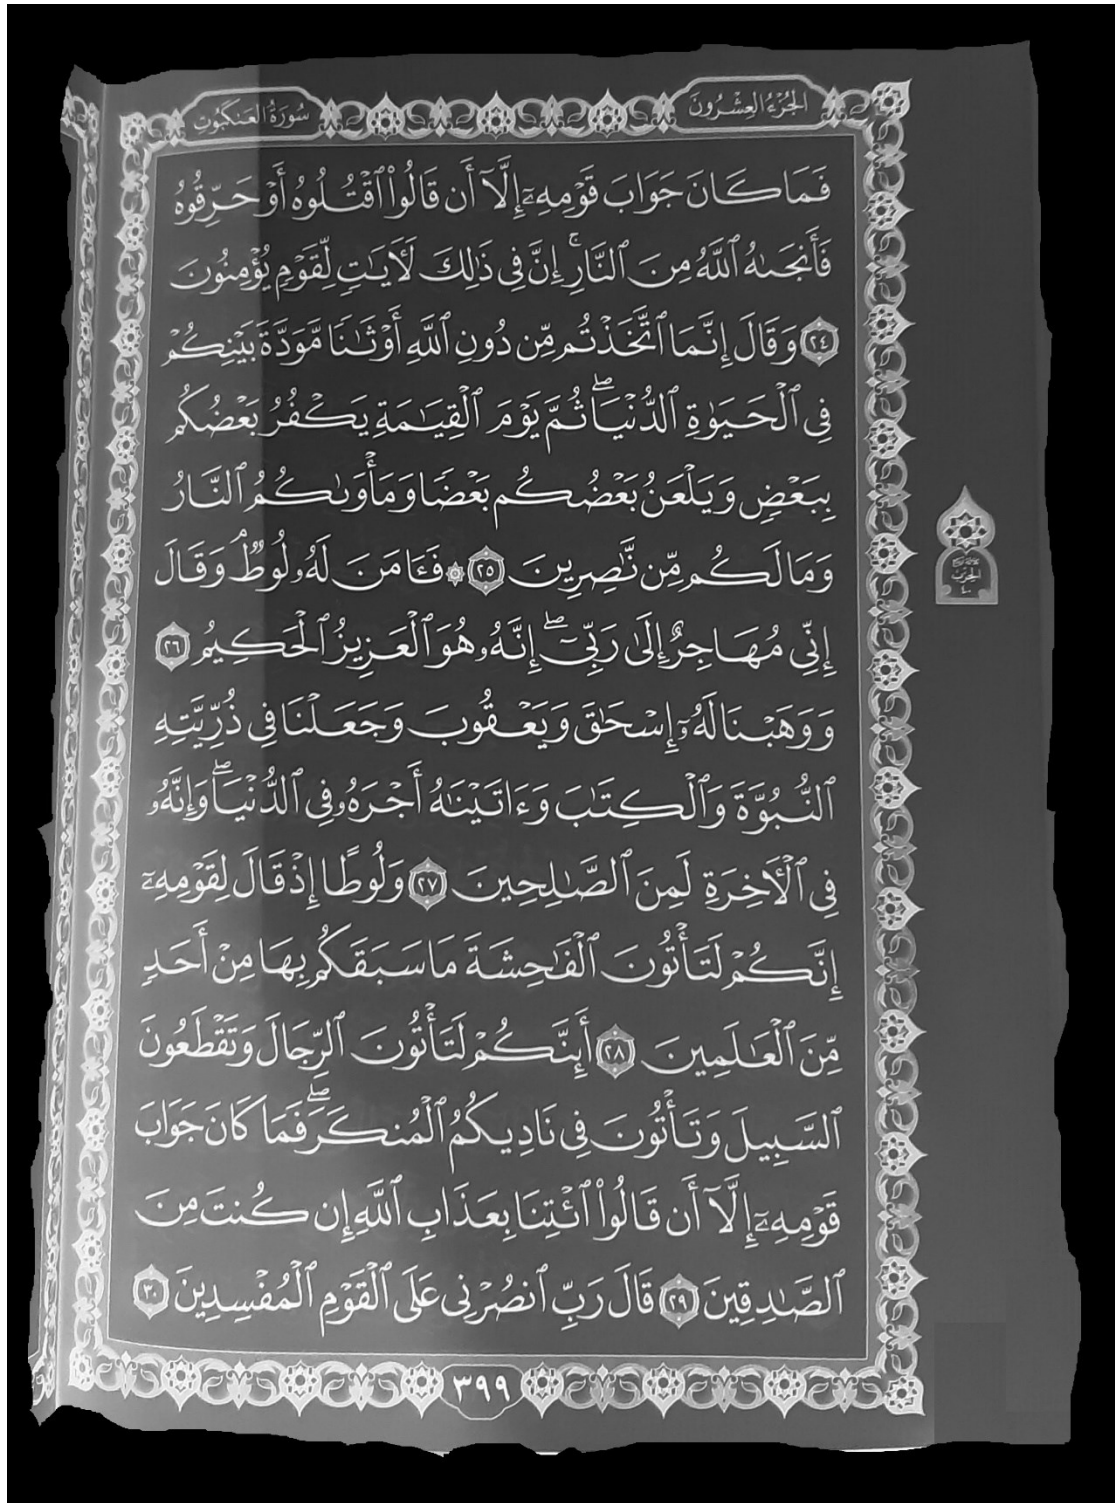 الجُزْءُ العِشْرُونَ
سُورَةُ العَنكَبُوتِ
فَمَا كَانَ جَوَابَ قَوْمِهِۦٓ إِلَّآ أَن قَالُوا۟ ٱقْتُلُوهُ أَوْ حَرِّقُوهُ
فَأَنجَىٰهُ ٱللَّهُ مِنَ ٱلنَّارِۚ إِنَّ فِى ذَٰلِكَ لَـَٔايَٰتٍ لِّقَوْمٍ يُؤْمِنُونَ
٢٤ وَقَالَ إِنَّمَا ٱتَّخَذْتُم مِّن دُونِ ٱللَّهِ أَوْثَٰنًا مَّوَدَّةَ بَيْنِكُمْ
فِى ٱلْحَيَوٰةِ ٱلدُّنْيَاۖ ثُمَّ يَوْمَ ٱلْقِيَٰمَةِ يَكْفُرُ بَعْضُكُم
بِبَعْضٍ وَيَلْعَنُ بَعْضُكُم بَعْضًا وَمَأْوَىٰكُمُ ٱلنَّارُ
وَمَا لَكُم مِّن نَّٰصِرِينَ ٢٥ ۞ فَـَٔامَنَ لَهُۥ لُوطٌۘ وَقَالَ
إِنِّى مُهَاجِرٌ إِلَىٰ رَبِّىٓۖ إِنَّهُۥ هُوَ ٱلْعَزِيزُ ٱلْحَكِيمُ ٢٦
وَوَهَبْنَا لَهُۥٓ إِسْحَٰقَ وَيَعْقُوبَ وَجَعَلْنَا فِى ذُرِّيَّتِهِ
ٱلنُّبُوَّةَ وَٱلْكِتَٰبَ وَءَاتَيْنَٰهُ أَجْرَهُۥ فِى ٱلدُّنْيَاۖ وَإِنَّهُۥ
فِى ٱلْـَٔاخِرَةِ لَمِنَ ٱلصَّٰلِحِينَ ٢٧ وَلُوطًا إِذْ قَالَ لِقَوْمِهِۦٓ
إِنَّكُمْ لَتَأْتُونَ ٱلْفَٰحِشَةَ مَا سَبَقَكُم بِهَا مِنْ أَحَدٍ
مِّنَ ٱلْعَٰلَمِينَ ٢٨ أَئِنَّكُمْ لَتَأْتُونَ ٱلرِّجَالَ وَتَقْطَعُونَ
ٱلسَّبِيلَ وَتَأْتُونَ فِى نَادِيكُمُ ٱلْمُنكَرَۖ فَمَا كَانَ جَوَابَ
قَوْمِهِۦٓ إِلَّآ أَن قَالُوا۟ ٱئْتِنَا بِعَذَابِ ٱللَّهِ إِن كُنتَ مِنَ
ٱلصَّٰدِقِينَ ٢٩ قَالَ رَبِّ ٱنصُرْنِى عَلَى ٱلْقَوْمِ ٱلْمُفْسِدِينَ ٣٠
الحِزْب
٤٠
٣٩٩